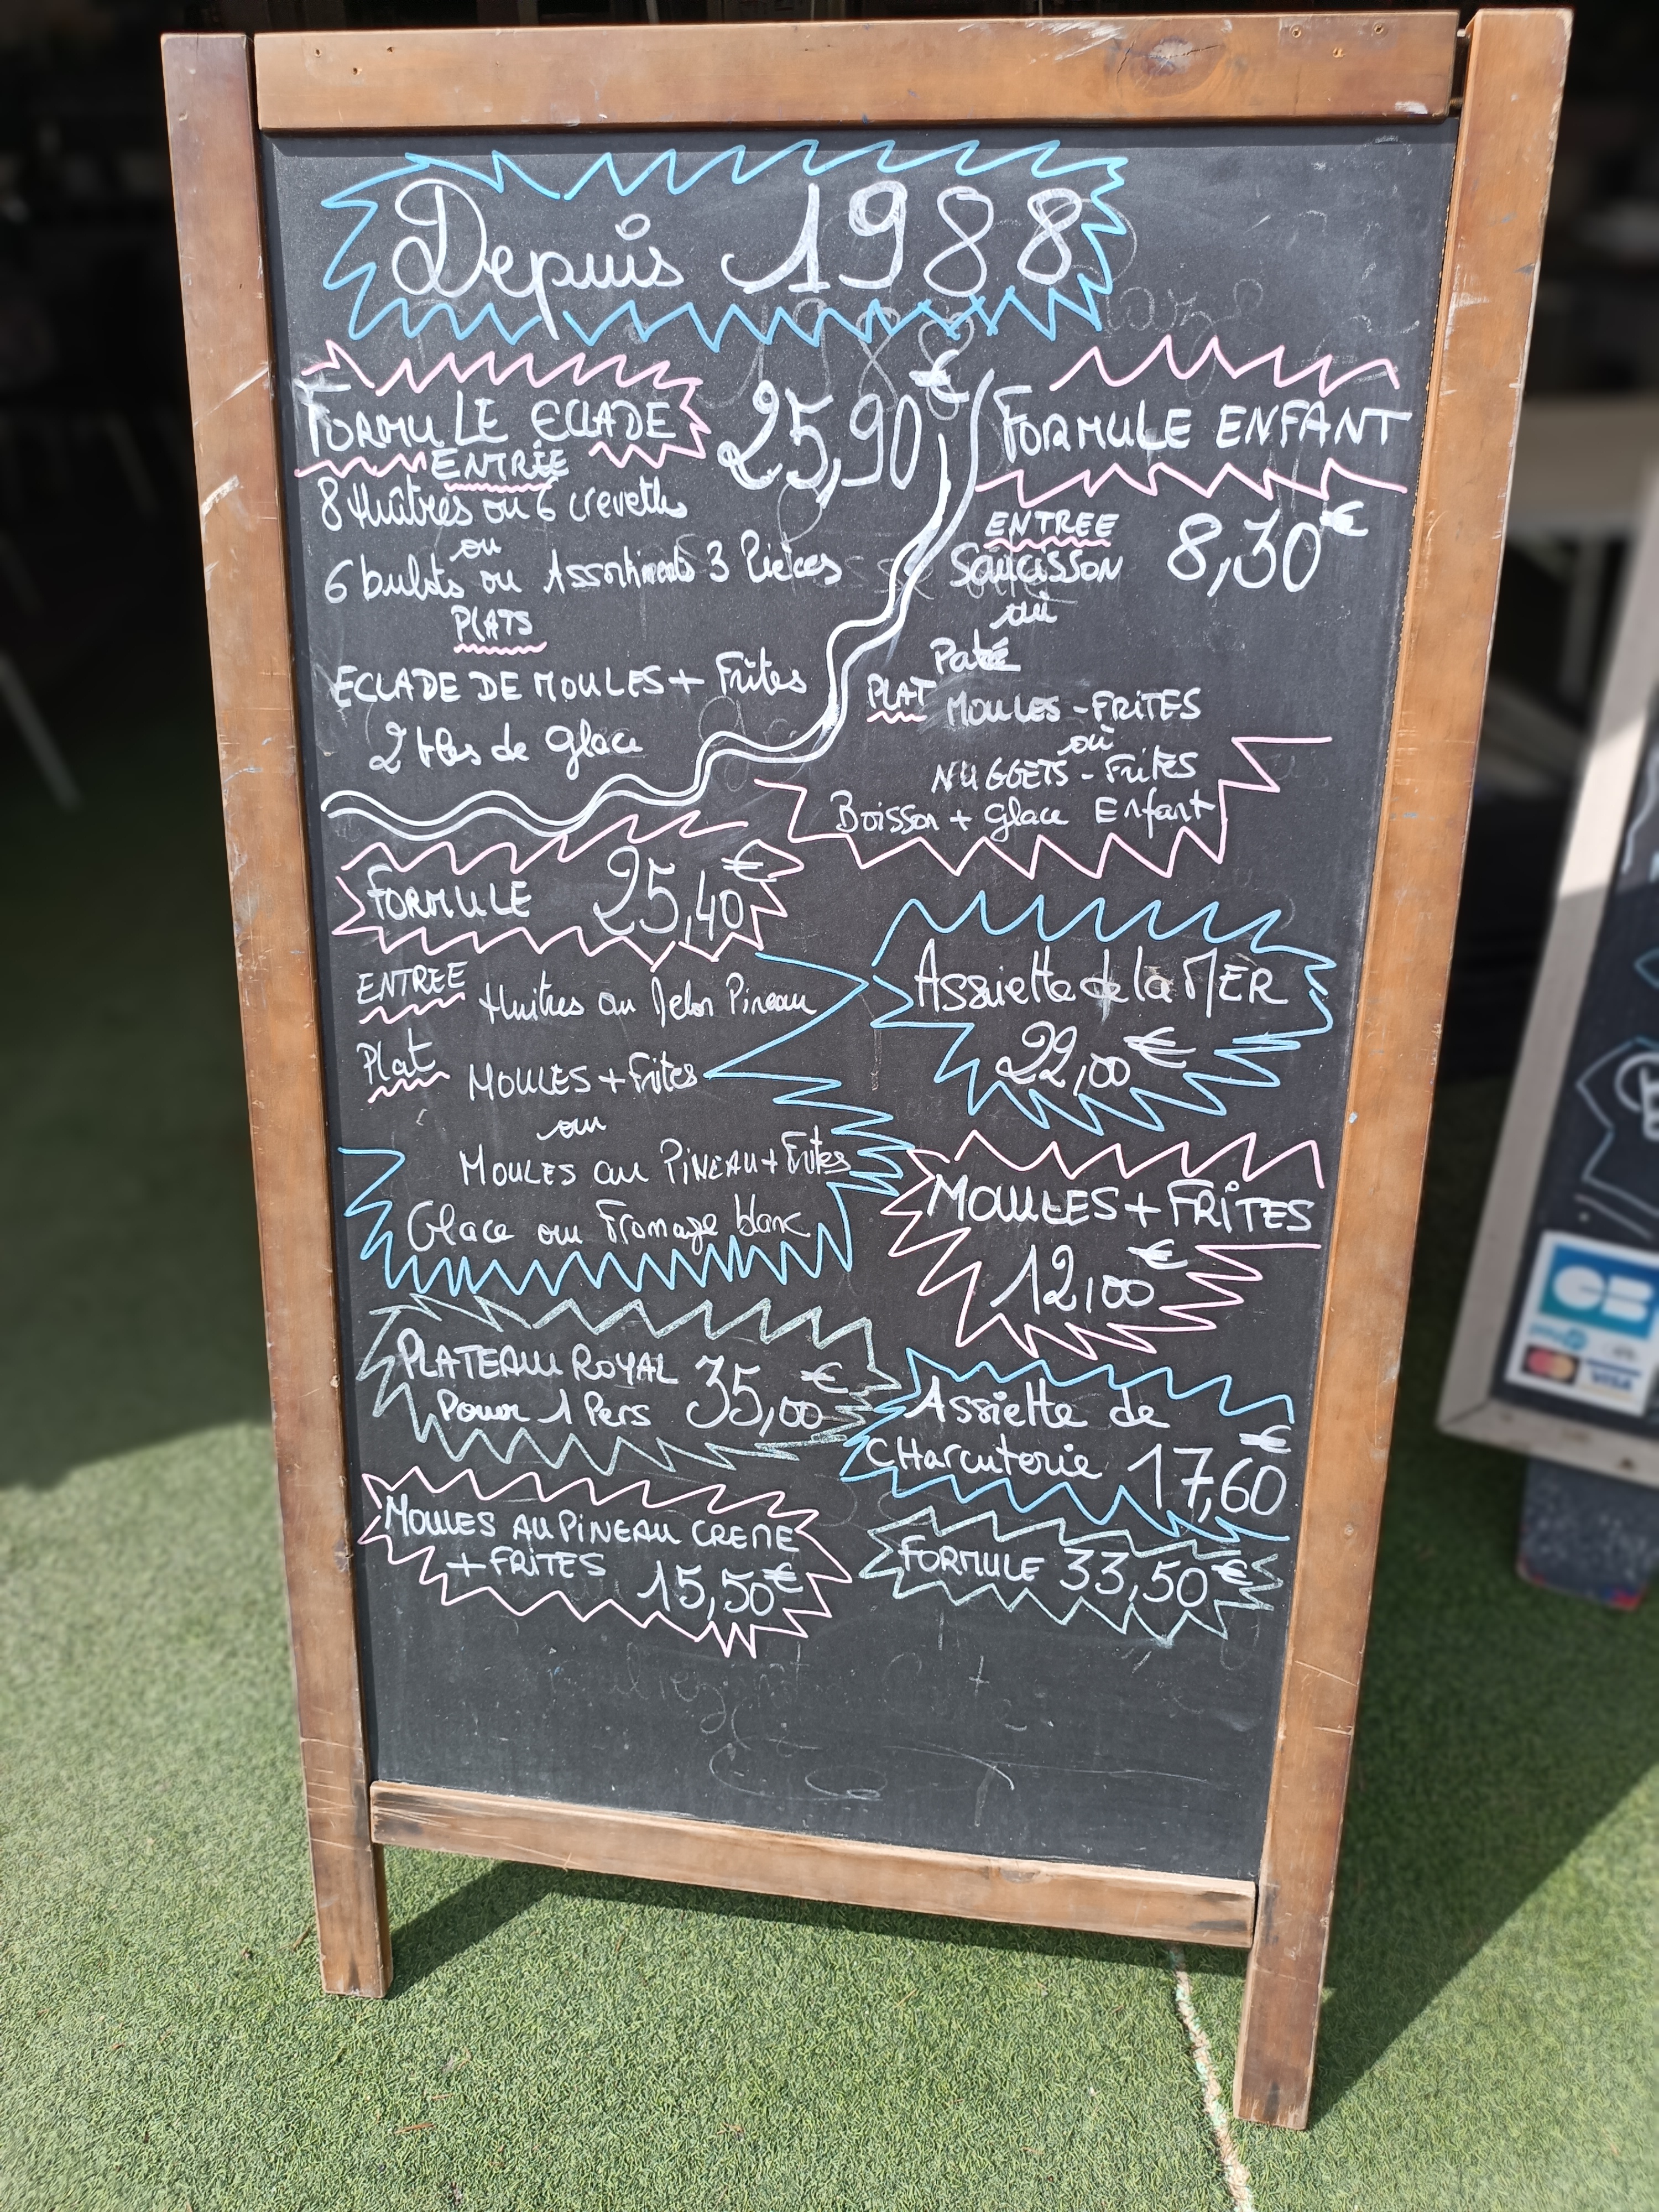 Depuis 1988
FORMULE ECLADE 25,90€
ENTRÉE
8 Huîtres ou 6 crevettes
ou
6 bulots ou Assortiments 3 Pièces
PLATS
ECLADE DE MOULES + Frites
2 bles de glace
FORMULE ENFANT
8,30€
ENTREE
SAUCISSON
ou
Paté
PLAT MOULES - FRITES
ou
NUGGETS - Frites
Boisson + glace Enfant
FORMULE 25,40€
ENTREE Huitres ou Melon Pineau
Plat MOULES + Frites
ou
MOULES au PINEAU + Frites
Glace ou Fromage blanc
Assiette de la MER
22,00€
MOULES + FRITES
12,00€
PLATEAU ROYAL
Pour 1 Pers 35,00€
Assiette de
CHarcuterie 17,60€
MOULES AU PINEAU CREME
+ FRITES 15,50€
FORMULE 33,50€
CB
VISA